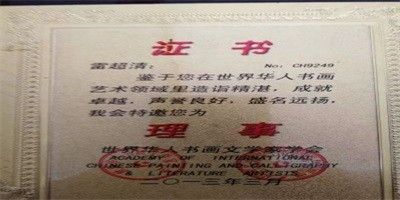 证书
雷超清: No: CH9249
鉴于您在世界华人书画
艺术领域里造诣精湛，成就
卓越，声誉良好，盛名远扬，
我会特邀您为
理事
世界华人书画文学家学会
ACADEMY OF INTERNATIONAL
CHINESE PAINTING AND CALLIGRAPHY
& LITERATURE ARTISTS
二〇一三年三月